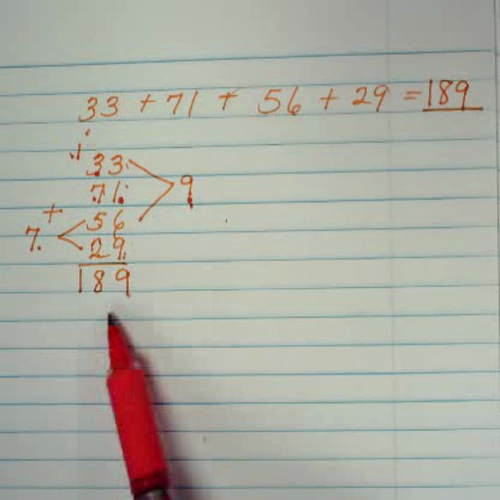 33 + 71 + 56 + 29 = 189
1
33
71
9
+ 56
7
29
189